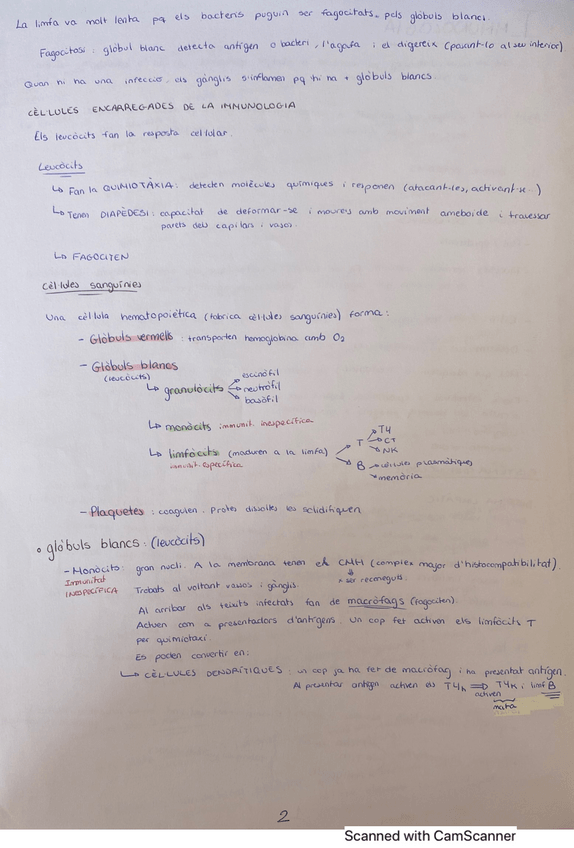 La limfa va molt lenta pq els bacteris puguin ser fagocitats pels glòbuls blancs.
Fagocitosi: glòbul blanc detecta antígen o bacteri, l'agafa i el digereix (posant-lo al seu interior).
Quan hi ha una infecció, els gànglis s'inflamen pq hi ha + glòbuls blancs.
CÈL·LULES ENCARREGADES DE LA IMMUNOLOGIA
Els leucòcits fan la resposta cel·lular.
Leucòcits
↳ Fan la QUIMIOTÀXIA: detecten molècules químiques i responen (atacant-les, activant-se)
↳ Tenen DIAPÈDESI: capacitat de deformar-se i moure's amb moviment ameboide i travessar
parets dels capilars i vasos.
↳ FAGOCITEN
Cèl·lules sanguínies
Una cèl·lula hematopoiètica (fabrica cèl·lules sanguínies) forma:
- Glòbuls vermells: transporten hemoglobina amb O2
- Glòbuls blancs
(leucòcits)
↳ granulòcits
eosinòfil
neutròfil
basòfil
↳ monòcits immunit. inespecífica
↳ limfòcits (maduren a la limfa)
immunit. específica
T
T4
CT
NK
B
cèl·lules plasmàtiques
memòria
- Plaquetes: coagulen. Protes dissoltes les solidifiquen
° glòbuls blancs: (leucòcits)
- Monòcits: gran nucli. A la membrana tenen el CMH (complex major d'histocompatibilitat).
Immunitat
INESPECÍFICA
x ser reconeguts.
Trobats al voltant vasos i gànglis.
Al arribar als teixits infectats fan de macròfags (fagociten).
Actuen com a presentadors d'antígens. Un cop fet activen els limfòcits T
per quimiotaxi.
Es poden convertir en:
↳ CÈL·LULES DENDRÍTIQUES: un cop ja ha fet de macròfag i ha presentat antígen.
Al presentar antigen activen els T4h ⇒ T4k i limf B
activen
mata
2
Scanned with CamScanner